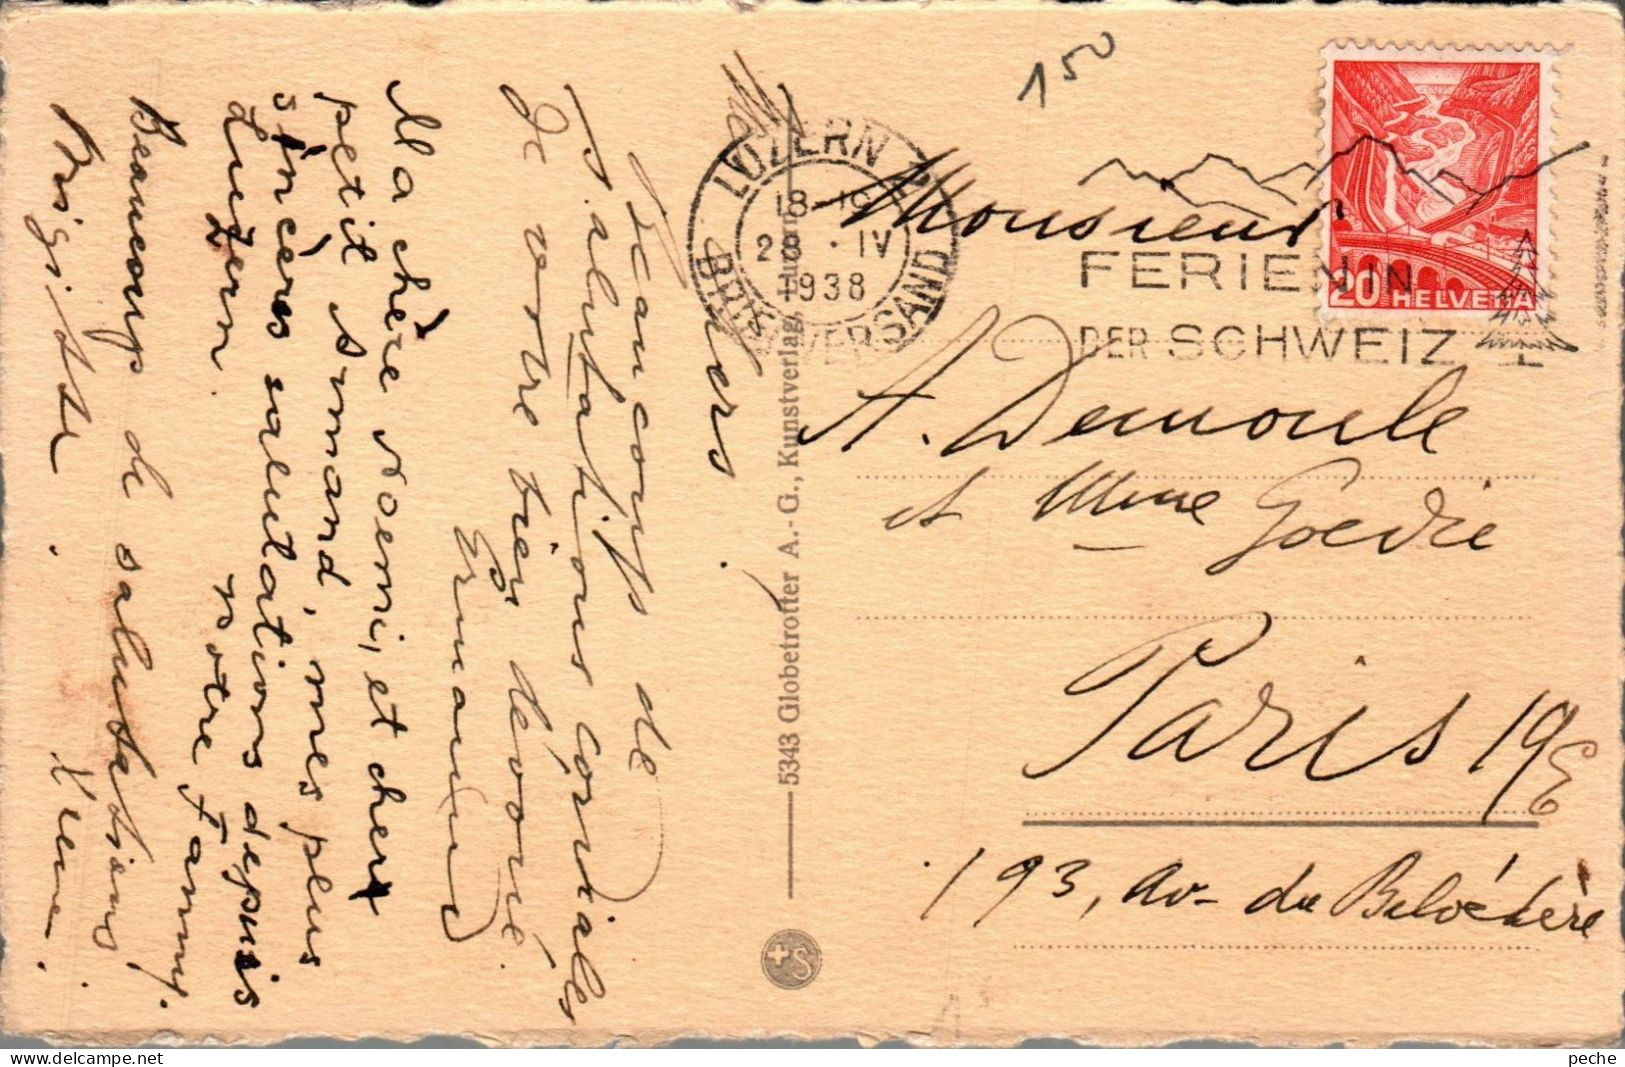 150
LUZERN 2
18-19
28. IV
1938
BRIEFVERSAND
FERIEN IN
DER SCHWEIZ
20 HELVETIA
Monsieur
A. Demoule
et Mme
Paris 19E
193, Av. du Belvédère
5343 Globetrotter A.-G., Kunstverlag, Luzern
+S
Beaucoup de
salutations cordiales
de votre bien dévoué
Ermanno
Ma chère Noemi, et cher
petit Armand, mes plus
sincères salutations depuis
Luzern.
Votre Fanny.
Beaucoup de salutations
Brigitte.
peche